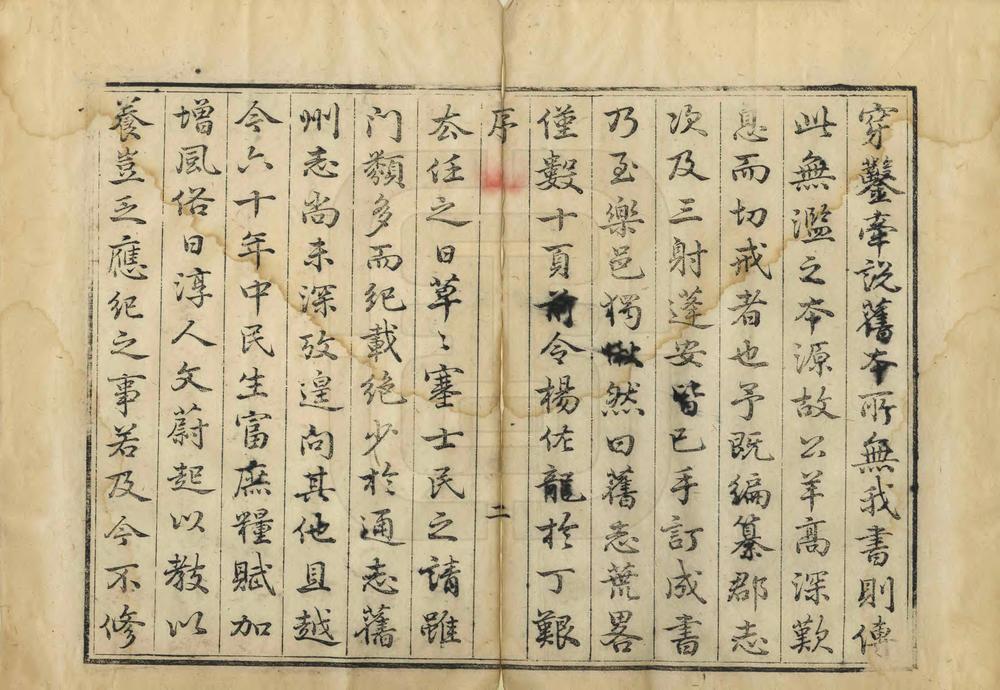 穿鑿牽説舊本所無我書則傳
此無濫之本源故公羊高深歎
息而切戒者也予既編纂郡志
次及三射蓬安皆已手訂成書
乃至樂邑獨愀然曰舊志荒畧
僅數十頁前令楊佐龍於丁艱
序 二
去任之日草〻塞士民之請雖
門類多而紀載絶少於通志舊
州志尚未深攷遑問其他且越
今六十年中民生富庶糧賦加
增風俗日淳人文蔚起以教以
養豈乏應紀之事若及今不修